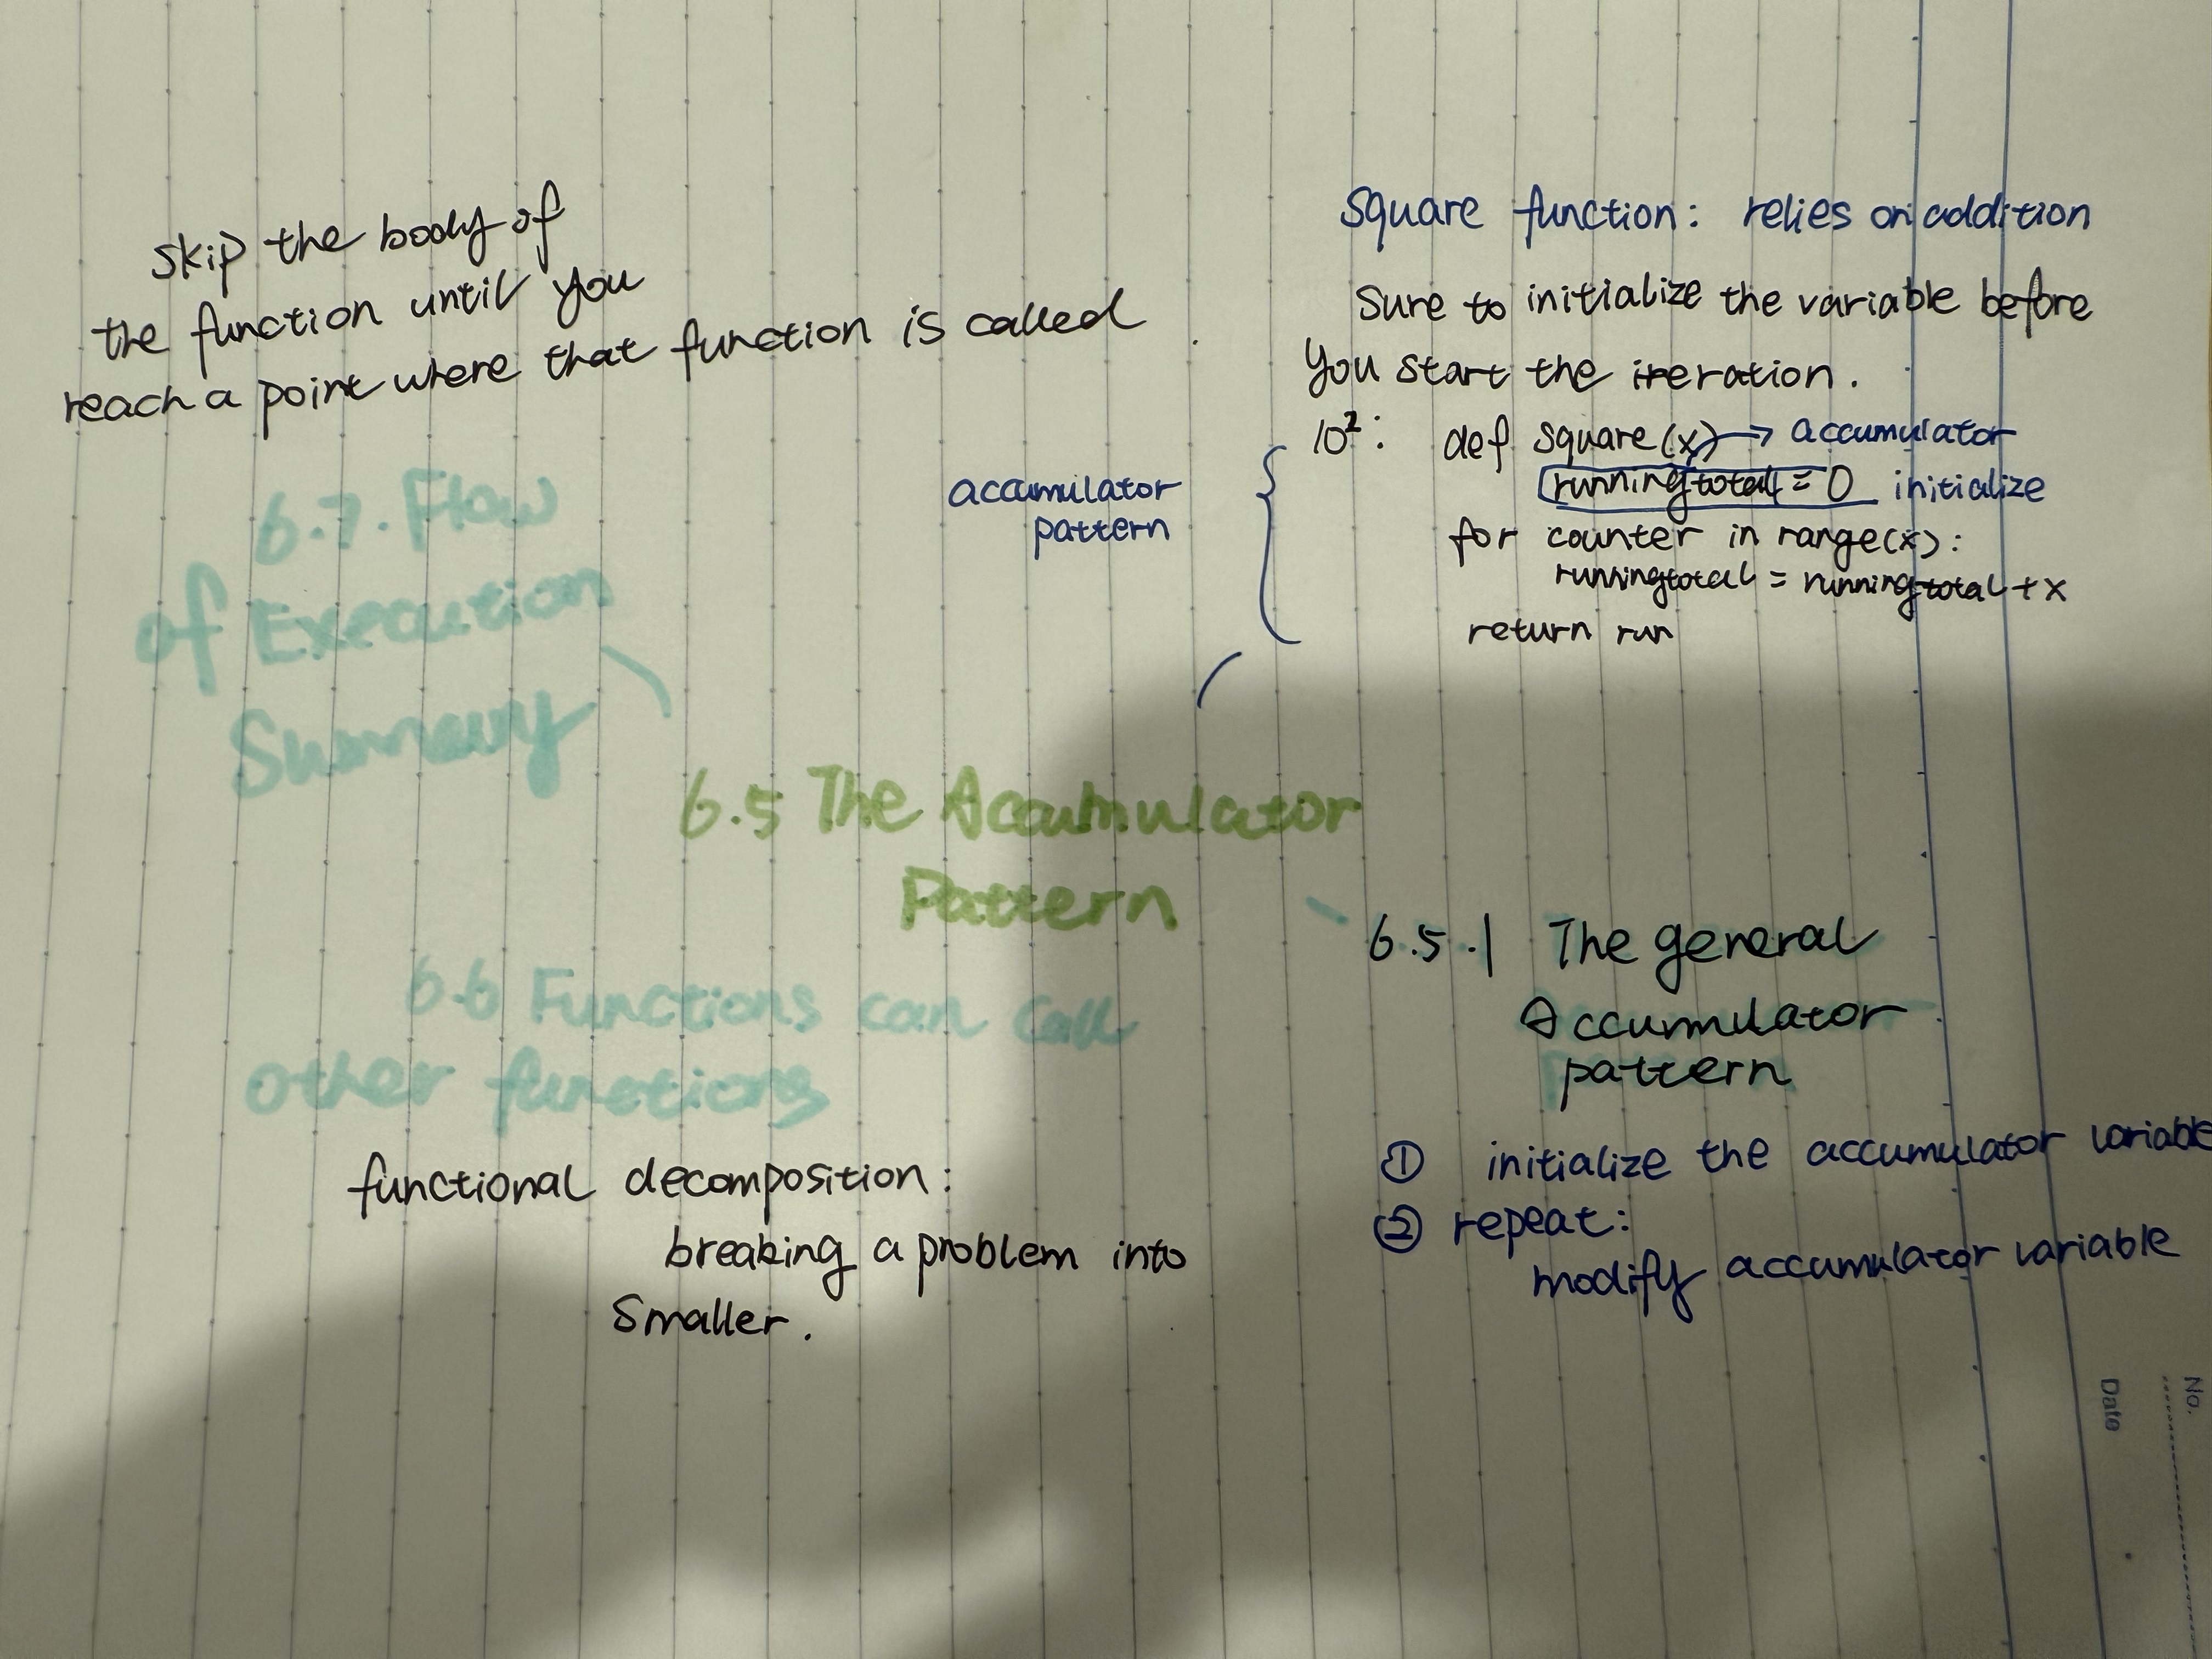 Skip the body of
the function until you
reach a point where that function is called
6.7. Flow
of Execution
Summary
6.6 Functions can call
other functions
functional decomposition:
breaking a problem into
smaller.
6.5 The Accumulator
Pattern
accumulator
pattern
Square function: relies on addition
Sure to initialize the variable before
you start the iteration.
10²: def square(x) → accumulator
runningtotal = 0 initialize
for counter in range(x):
runningtotal = runningtotal + x
return run
6.5.1 The general
Accumulator
pattern
① initialize the accumulator variable
② repeat:
modify accumulator variable
Date
No.